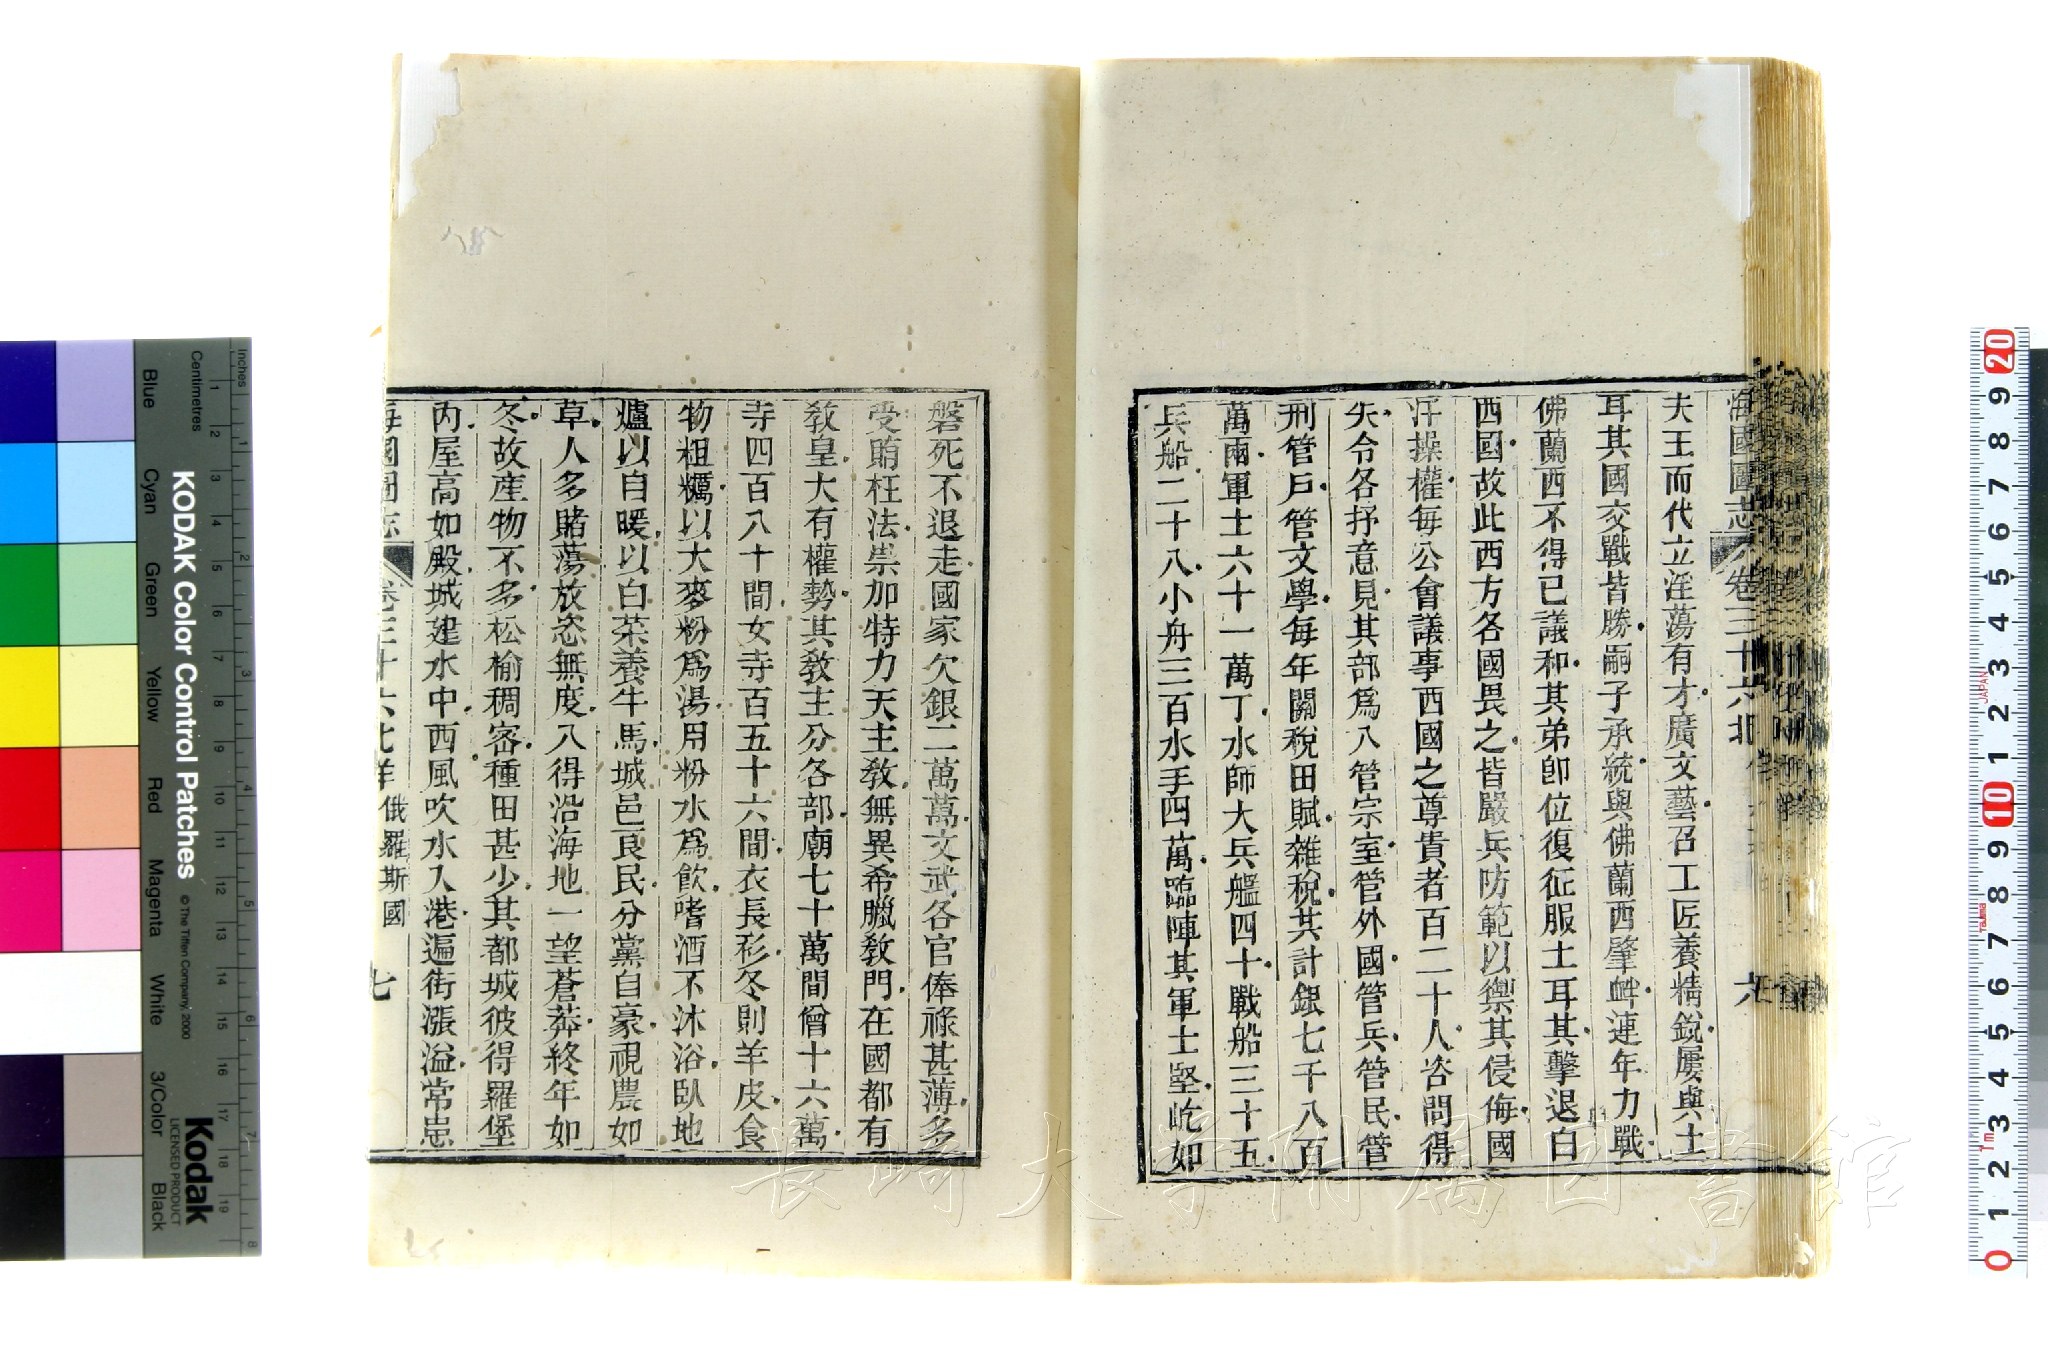 海國圖志 卷三十六 北 六
夫王而代立淫蕩有才廣文藝召工匠養精銳屢與土
耳其國交戰皆勝嗣子承統與佛蘭西肇衅連年力戰
佛蘭西不得已議和其弟卽位復征服土耳其擊退白
西國故此西方各國畏之皆嚴兵防範以禦其侵侮國
汗操權每公會議事西國之尊貴者百二十人咨問得
失令各抒意見其部爲八管宗室管外國管兵管民管
刑管戶管文學每年關稅田賦雜稅共計銀七千八百
萬兩軍士六十一萬丁水師大兵艦四十戰船三十五
兵船二十八小舟三百水手四萬臨陣其軍士堅屹如
磐死不退走國家欠銀二萬萬文武各官俸祿甚薄多
受賄枉法崇加特力天主敎無異希臘敎門在國都有
敎皇大有權勢其敎主分各部廟七十萬間僧十六萬
寺四百八十間女寺百五十六間衣長衫冬則羊皮食
物粗糲以大麥粉爲湯用粉水爲飮嗜酒不沐浴臥地
爐以自暖以白茶養牛馬城邑良民分黨自豪視農如
草人多賭蕩放恣無度入得沿海地一望蒼莽終年如
冬故產物不多松榆稠密種田甚少其都城彼得羅堡
內屋高如殿城建水中西風吹水入港遍街漲溢常患
海國圖志 卷三十六 北洋 俄羅斯國 七
KODAK Color Control Patches
© The Tiffen Company, 2000
Kodak
LICENSED PRODUCT
Inches
Centimetres
Blue Cyan Green Yellow Red Magenta White 3/Color Black
長崎大学附属図書館
JAPAN